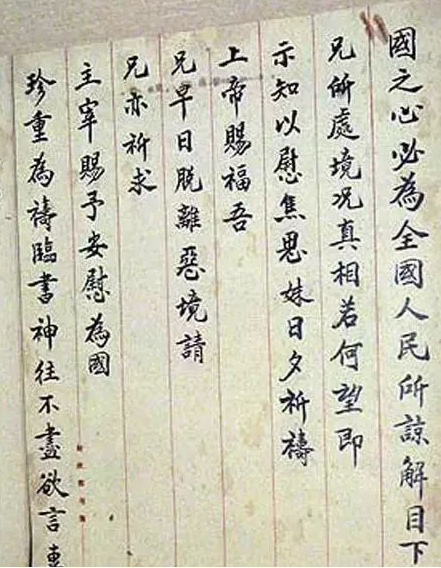 國之心必為全國人民所諒解目下
兄所處境況真相若何望即
示知以慰焦思妹日夕祈禱
上帝賜福吾
兄早日脫離惡境請
兄亦祈求
主宰賜予安慰為國
珍重為禱臨書神往不盡欲言專